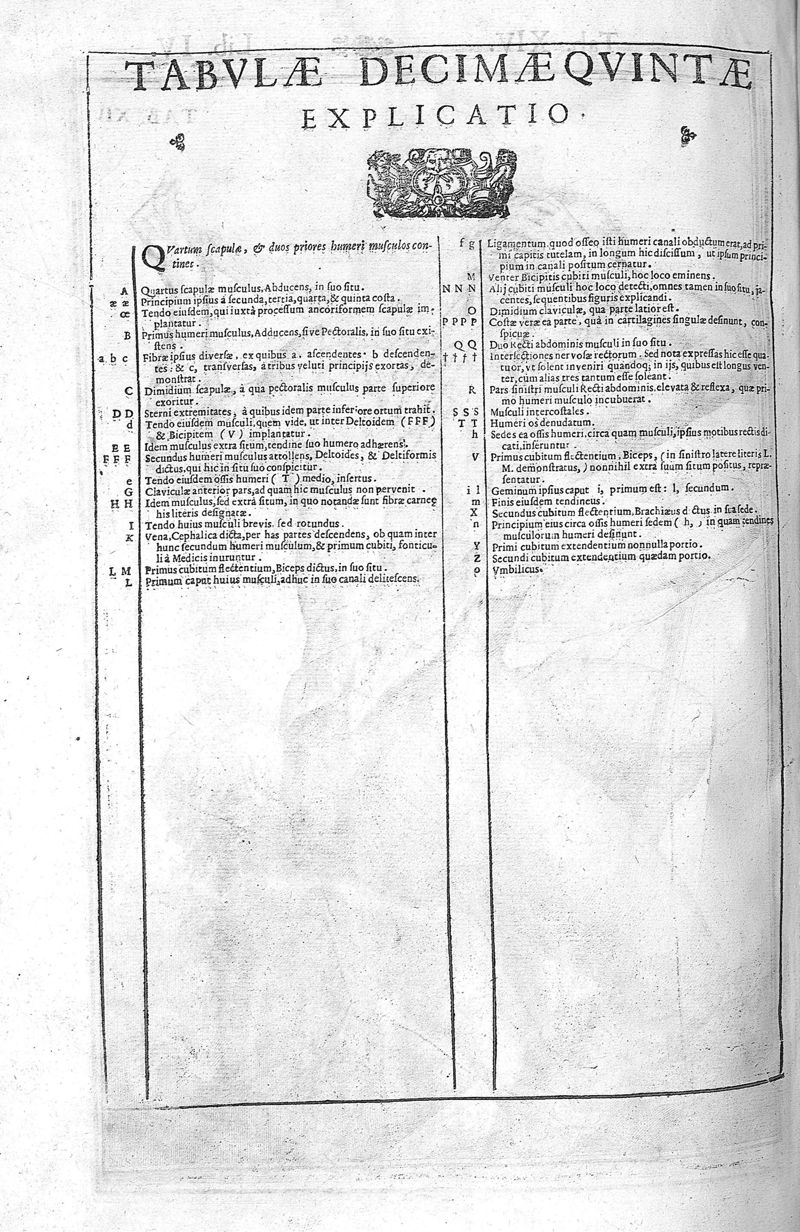 TABVLÆ DECIMÆQVINTÆ
EXPLICATIO.
QVartum ſcapulæ, & duos priores humeri muſculos con-
tinet.
A Quartus ſcapulæ muſculus, Abducens, in ſuo ſitu.
æ æ Principium ipſius à ſecunda, tertia, quarta, & quinta coſta.
œ Tendo eiuſdem, qui iuxtà proceſſum ancoriformem ſcapulæ im-
plantatur.
B Primus humeri muſculus, Adducens, ſive Pectoralis, in ſuo ſitu exi-
ſtens.
a b c Fibræ ipſius diverſæ, ex quibus a. aſcendentes. b deſcenden-
tes: & c, tranſverſas, à tribus veluti principijs exortas, de-
monſtrat.
C Dimidium ſcapulæ, à qua pectoralis muſculus parte ſuperiore
exoritur.
D D Sterni extremitates, à quibus idem parte inferiore ortum trahit.
d Tendo eiuſdem muſculi, quem vide, ut inter Deltoidem (FFF)
& Bicipitem (V) implantatur.
E E Idem muſculus extra ſitum, tendine ſuo humero adhærens.
F F F Secundus humeri muſculus attollens, Deltoides, & Deltiformis
dictus, qui hic in ſitu ſuo conſpicitur.
e Tendo eiuſdem oſſis humeri (T) medio, inſertus.
G Claviculæ anterior pars, ad quam hic muſculus non pervenit.
H H Idem muſculus, ſed extra ſitum, in quo notandæ ſunt fibræ carneæ
his literis deſignatæ.
I Tendo huius muſculi brevis, ſed rotundus.
K Vena, Cephalica dicta, per has partes deſcendens, ob quam inter
hunc ſecundum humeri muſculum, & primum cubiti, fonticu-
li à Medicis inuruntur.
L M Primus cubitum flectentium, Biceps dictus, in ſuo ſitu.
L Primum caput huius muſculi, adhuc in ſuo canali deliteſcens.
f g Ligamentum, quod oſſeo iſti humeri canali obductum erat, ad pri-
mi capitis tutelam, in longum hic diſciſſum, ut ipſum princi-
pium in canali poſitum cernatur.
M Venter Bicipitis cubiti muſculi, hoc loco eminens.
N N N Alij cubiti muſculi hoc loco detecti, omnes tamen in ſuo ſitu, ja-
centes, ſequentibus figuris explicandi.
O Dimidium claviculæ, qua parte latior eſt.
P P P P Coſtæ veræ ea parte, quà in cartilagines ſingulæ deſinunt, con-
ſpicuæ.
Q Q Duo Recti abdominis muſculi in ſuo ſitu.
† † † † Interſectiones nervoſæ rectorum. Sed nota expreſſas hic eſſe qua-
tuor, vt ſolent inveniri quandoq; in ijs, quibus eſt longus ven-
ter, cùm alias tres tantum eſſe ſoleant.
R Pars ſiniſtri muſculi Recti abdominis, elevata & reflexa, quæ pri-
mo humeri muſculo incubuerat.
S S S Muſculi intercoſtales.
T T Humeri os denudatum.
h Sedes ea oſſis humeri, circa quam muſculi, ipſius motibus rectis di-
cati, inſeruntur.
V Primus cubitum flectentium, Biceps, (in ſiniſtro latere literis L.
M. demonſtratus,) nonnihil extra ſuum ſitum poſitus, repræ-
ſentatur.
i l Geminum ipſius caput i, primum eſt: l, ſecundum.
m Finis eiuſdem tendineus.
X Secundus cubitum flectentium, Brachiæus dictus in ſua ſede.
n Principium eius circa oſſis humeri ſedem (h,) in quam tendines
muſculorum humeri deſinunt.
Y Primi cubitum extendentium nonnulla portio.
Z Secundi cubitum extendentium quædam portio.
o Vmbilicus.